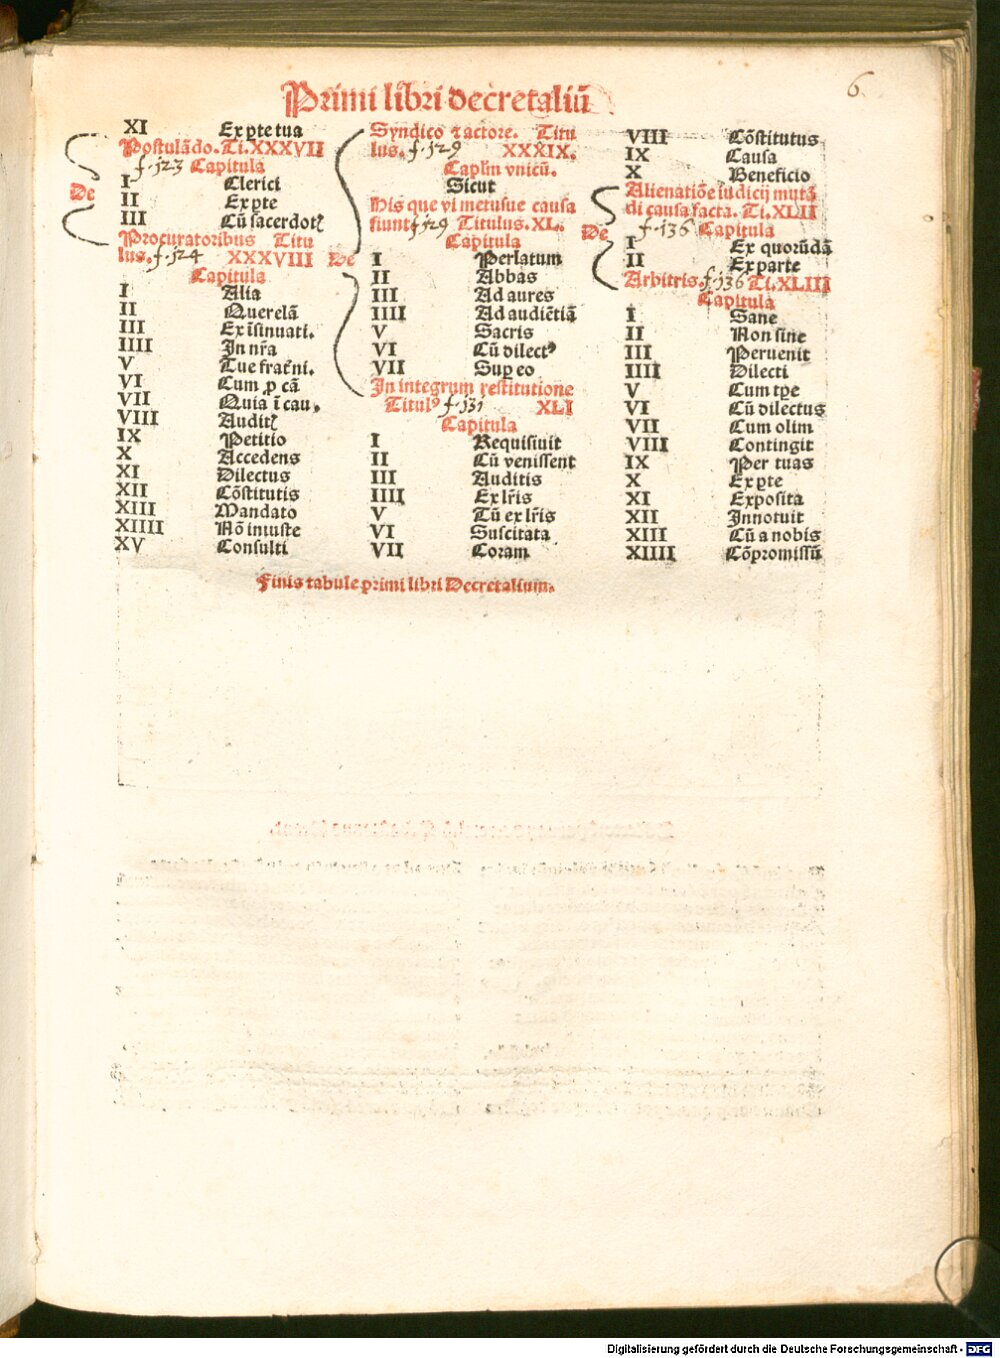 Primi libri decretaliũ
6
XI Ex ꝑte tua
Postulãdo. Ti. XXXVII
f. 123 Capitula
De
I Clerici
II Ex ꝑte
III Cũ sacerdotꝭ
Procuratoribus Titu
lus. f. 124 XXXVIII
Capitula
I Alia
II Querelã
III Ex ĩsinuati.
IIII In nr̃a
V Tue frat̃ni.
VI Cum ꝓ cã
VII Quia ĩ cau.
VIII Auditꝭ
IX Petitio
X Accedens
XI Dilectus
XII Cõstitutis
XIII Mandato
XIIII Nõ iniuste
XV Consulti
Syndico ⁊ actore. Titu
lus. f. 129 XXXIX.
Caplm̃ vnicũ.
Sicut
His que vi metusue causa
fiunt f. 129 Titulus. XL.
Capitula
De
I Perlatum
II Abbas
III Ad aures
IIII Ad audiẽtiã
V Sacris
VI Cũ dilectꝰ
VII Suꝑ eo
In integrum restitutione
Titulꝰ f. 131 XLI
Capitula
I Requisiuit
II Cũ venissent
III Auditis
IIII Ex lr̃is
V Tũ ex lr̃is
VI Suscitata
VII Coram
VIII Cõstitutus
IX Causa
X Beneficio
Alienatiõe iudicij mutã
di causa facta. Ti. XLII
De
f. 136 Capitula
I Ex quorũdã
II Ex parte
Arbitris. f. 136 Ti. XLIII
Capitula
I Sane
II Non sine
III Peruenit
IIII Dilecti
V Cum tꝑe
VI Cũ dilectus
VII Cum olim
VIII Contingit
IX Per tuas
X Ex ꝑte
XI Exposita
XII Innotuit
XIII Cũ a nobis
XIIII Cõpromissũ
Finis tabule primi libri Decretalium.
Digitalisierung gefördert durch die Deutsche Forschungsgemeinschaft - DFG